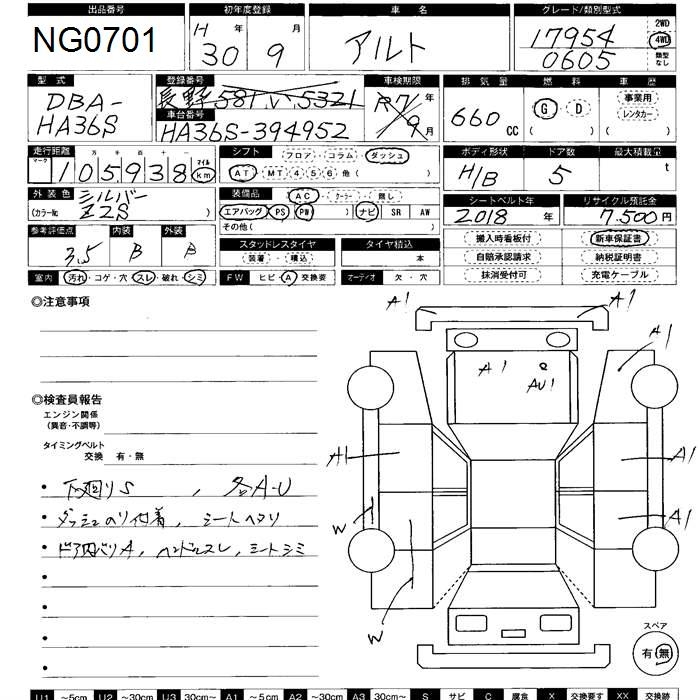 出品番号 初年度登録 車名 グレード/類別型式
NG0701 H 30 年 9 月 アルト 17954 0605 2WD 4WD 類型なし
型式 登録番号 車検期限 排気量 燃料 車歴
DBA-HA36S 長野581い5321 R7年9月 660cc G・D ( ) 事業用 レンタカー ( )
車台番号
HA36S-394952
走行距離 シフト フロア・コラム・ダッシュ ボディ形状 ドア数 最大積載量
マーク 十万 万 千 百 十 一 マイル km
105938 AT・MT 4 5 6 他( ) H/B 5 t
外装色 シルバー 装備品 AC・クーラー・無し シートベルト年 リサイクル預託金
(カラーNo Z2S ) エアバッグ PS PW ( ) ナビ SR AW 2018年 7,500円
その他( )
参考評価点 内装 外装
3.5 B B
スタッドレスタイヤ タイヤ積込 搬入時看板付 新車保証書
装着・積込 本 自賠承認請求 納税証明書
室内 汚れ・コゲ・穴・スレ・破れ・シミ FW ヒビ・A 交換要 オーディオ 欠・穴 抹消受付可 充電ケーブル
◎注意事項
◎検査員報告
エンジン関係
(異音・不調等)
タイミングベルト
交換 有・無
・下回りS 、各A-U
・ダッシュのり付着、シートヘタリ
・ドア内バリA、ハンドルスレ、シートシミ
A1 A1
A1 A1 AU1
A1 A1
W A1
W
スペア
有・無
U1 ~5cm U2 ~30cm U3 30cm~ A1 ~5cm A2 ~30cm A3 30cm~ S サビ C 腐食 X 交換要す XX 交換跡